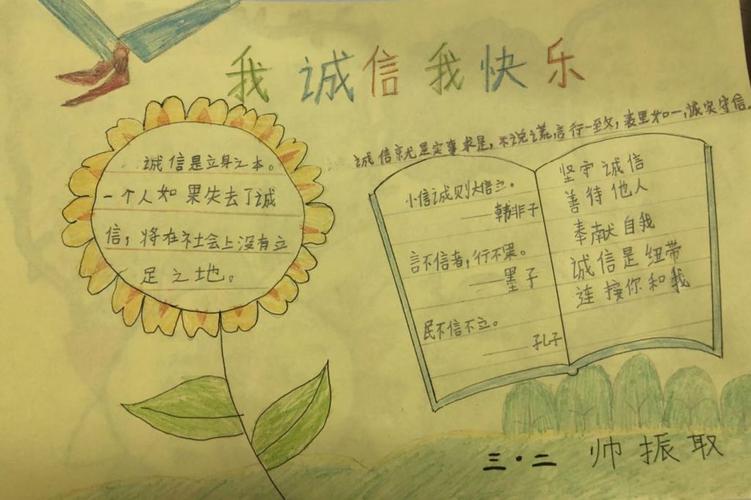 我诚信我快乐
诚信就是实事求是，不说谎言行一致，表里如一，诚实守信.
诚信是立身之本。
一个人如果失去了诚
信，将在社会上没有立
足之地。
小信诚则大信立。
——韩非子
言不信者，行不果。
——墨子
民不信不立。
——孔子
坚守诚信
善待他人
奉献自我
诚信是纽带
连接你和我
三·二 帅振取